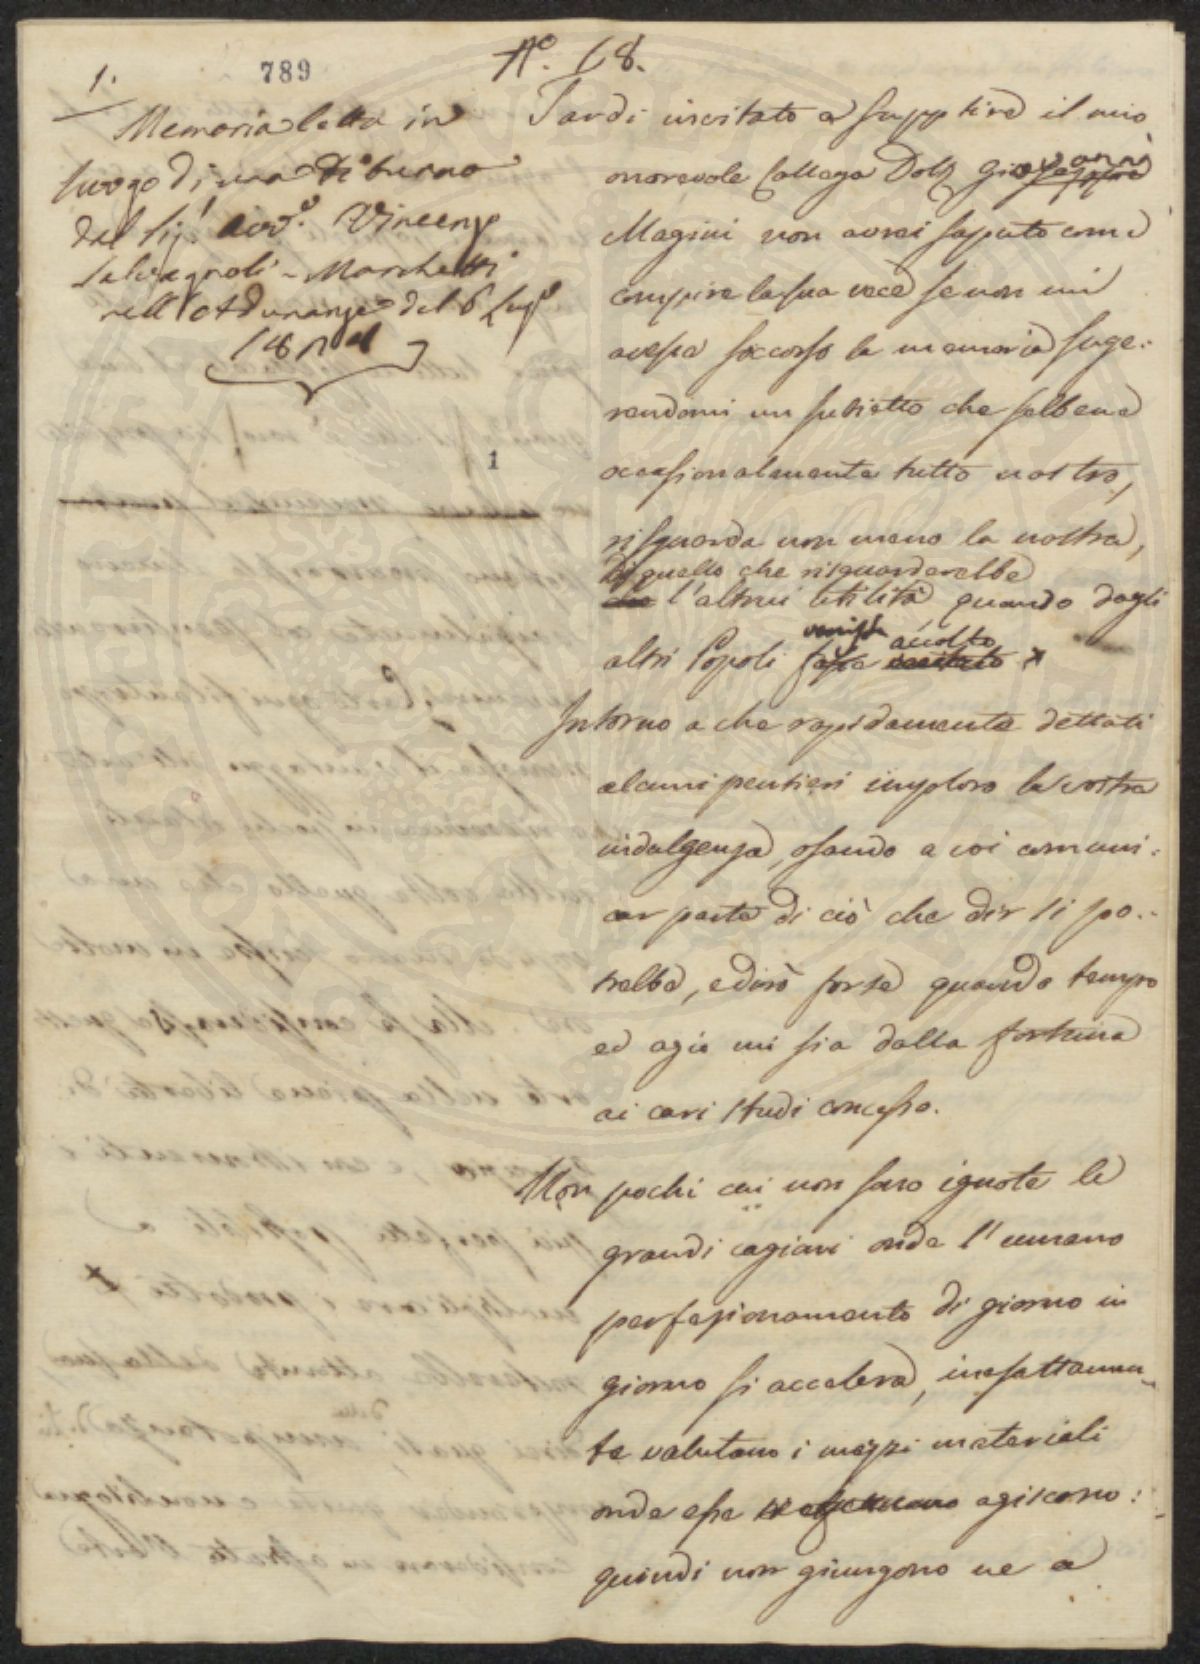 1.
789
N.º 18.
Memoria letta in
luogo di una di turno
dal Sig.r Avv.º Vincenzo
Salvagnoli-Marchetti
nell'Adunanza del 6 Lug.º
1
Tardi invitato a supplire il mio
onorevole Collega Dott. Giovanni
Magini non avrei saputo come
compire la sua vece se non mi
avesse soccorso la memoria suge-
rendomi un subietto che sebbene
occasionalmente tutto nostro,
risguarda non meno la nostra,
di quello che risguarderebbe
che l'altrui utilità, quando dagli
venisse accolto
altri Popoli fosse
Intorno a che rapidamente dettati
alcuni pensieri imploro la vostra
indulgenza, osando a voi comuni-
car parte di ciò che dir si po-
trebbe, e dirò forse quando tempo
ed agio mi sia dalla fortuna
ai cari studi concesso.
Non pochi cui non sono ignote le
grandi cagioni onde l'umano
perfezionamento di giorno in
giorno si accelera, inesattamen-
te valutano i mezzi materiali
onde esse agiscono:
quindi non giungono ne a